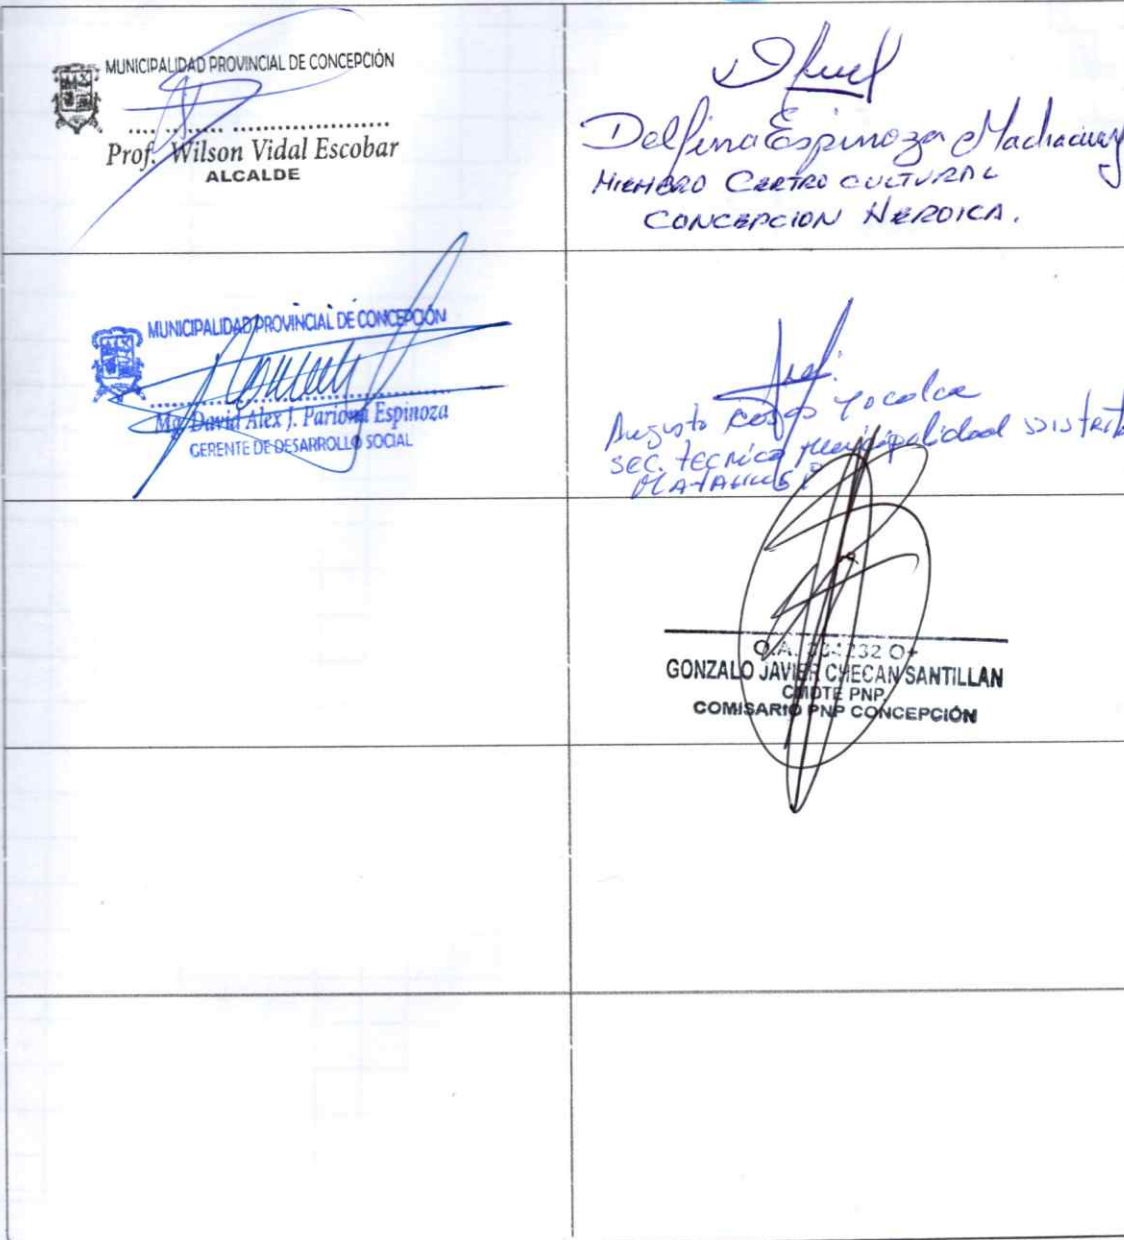 MUNICIPALIDAD PROVINCIAL DE CONCEPCIÓN
Prof. Wilson Vidal Escobar
ALCALDE
Delfina Espinoza
MIEMBRO CENTRO CULTURAL
CONCEPCION HEROICA.
MUNICIPALIDAD PROVINCIAL DE CONCEPCIÓN
Mg. David Alex J. Pariona Espinoza
GERENTE DE DESARROLLO SOCIAL
Augusto
sec. tecnico municipalidad
O.A. 232 O+
GONZALO JAVIER CHECAN SANTILLAN
CMDTE PNP.
COMISARIO PNP CONCEPCIÓN